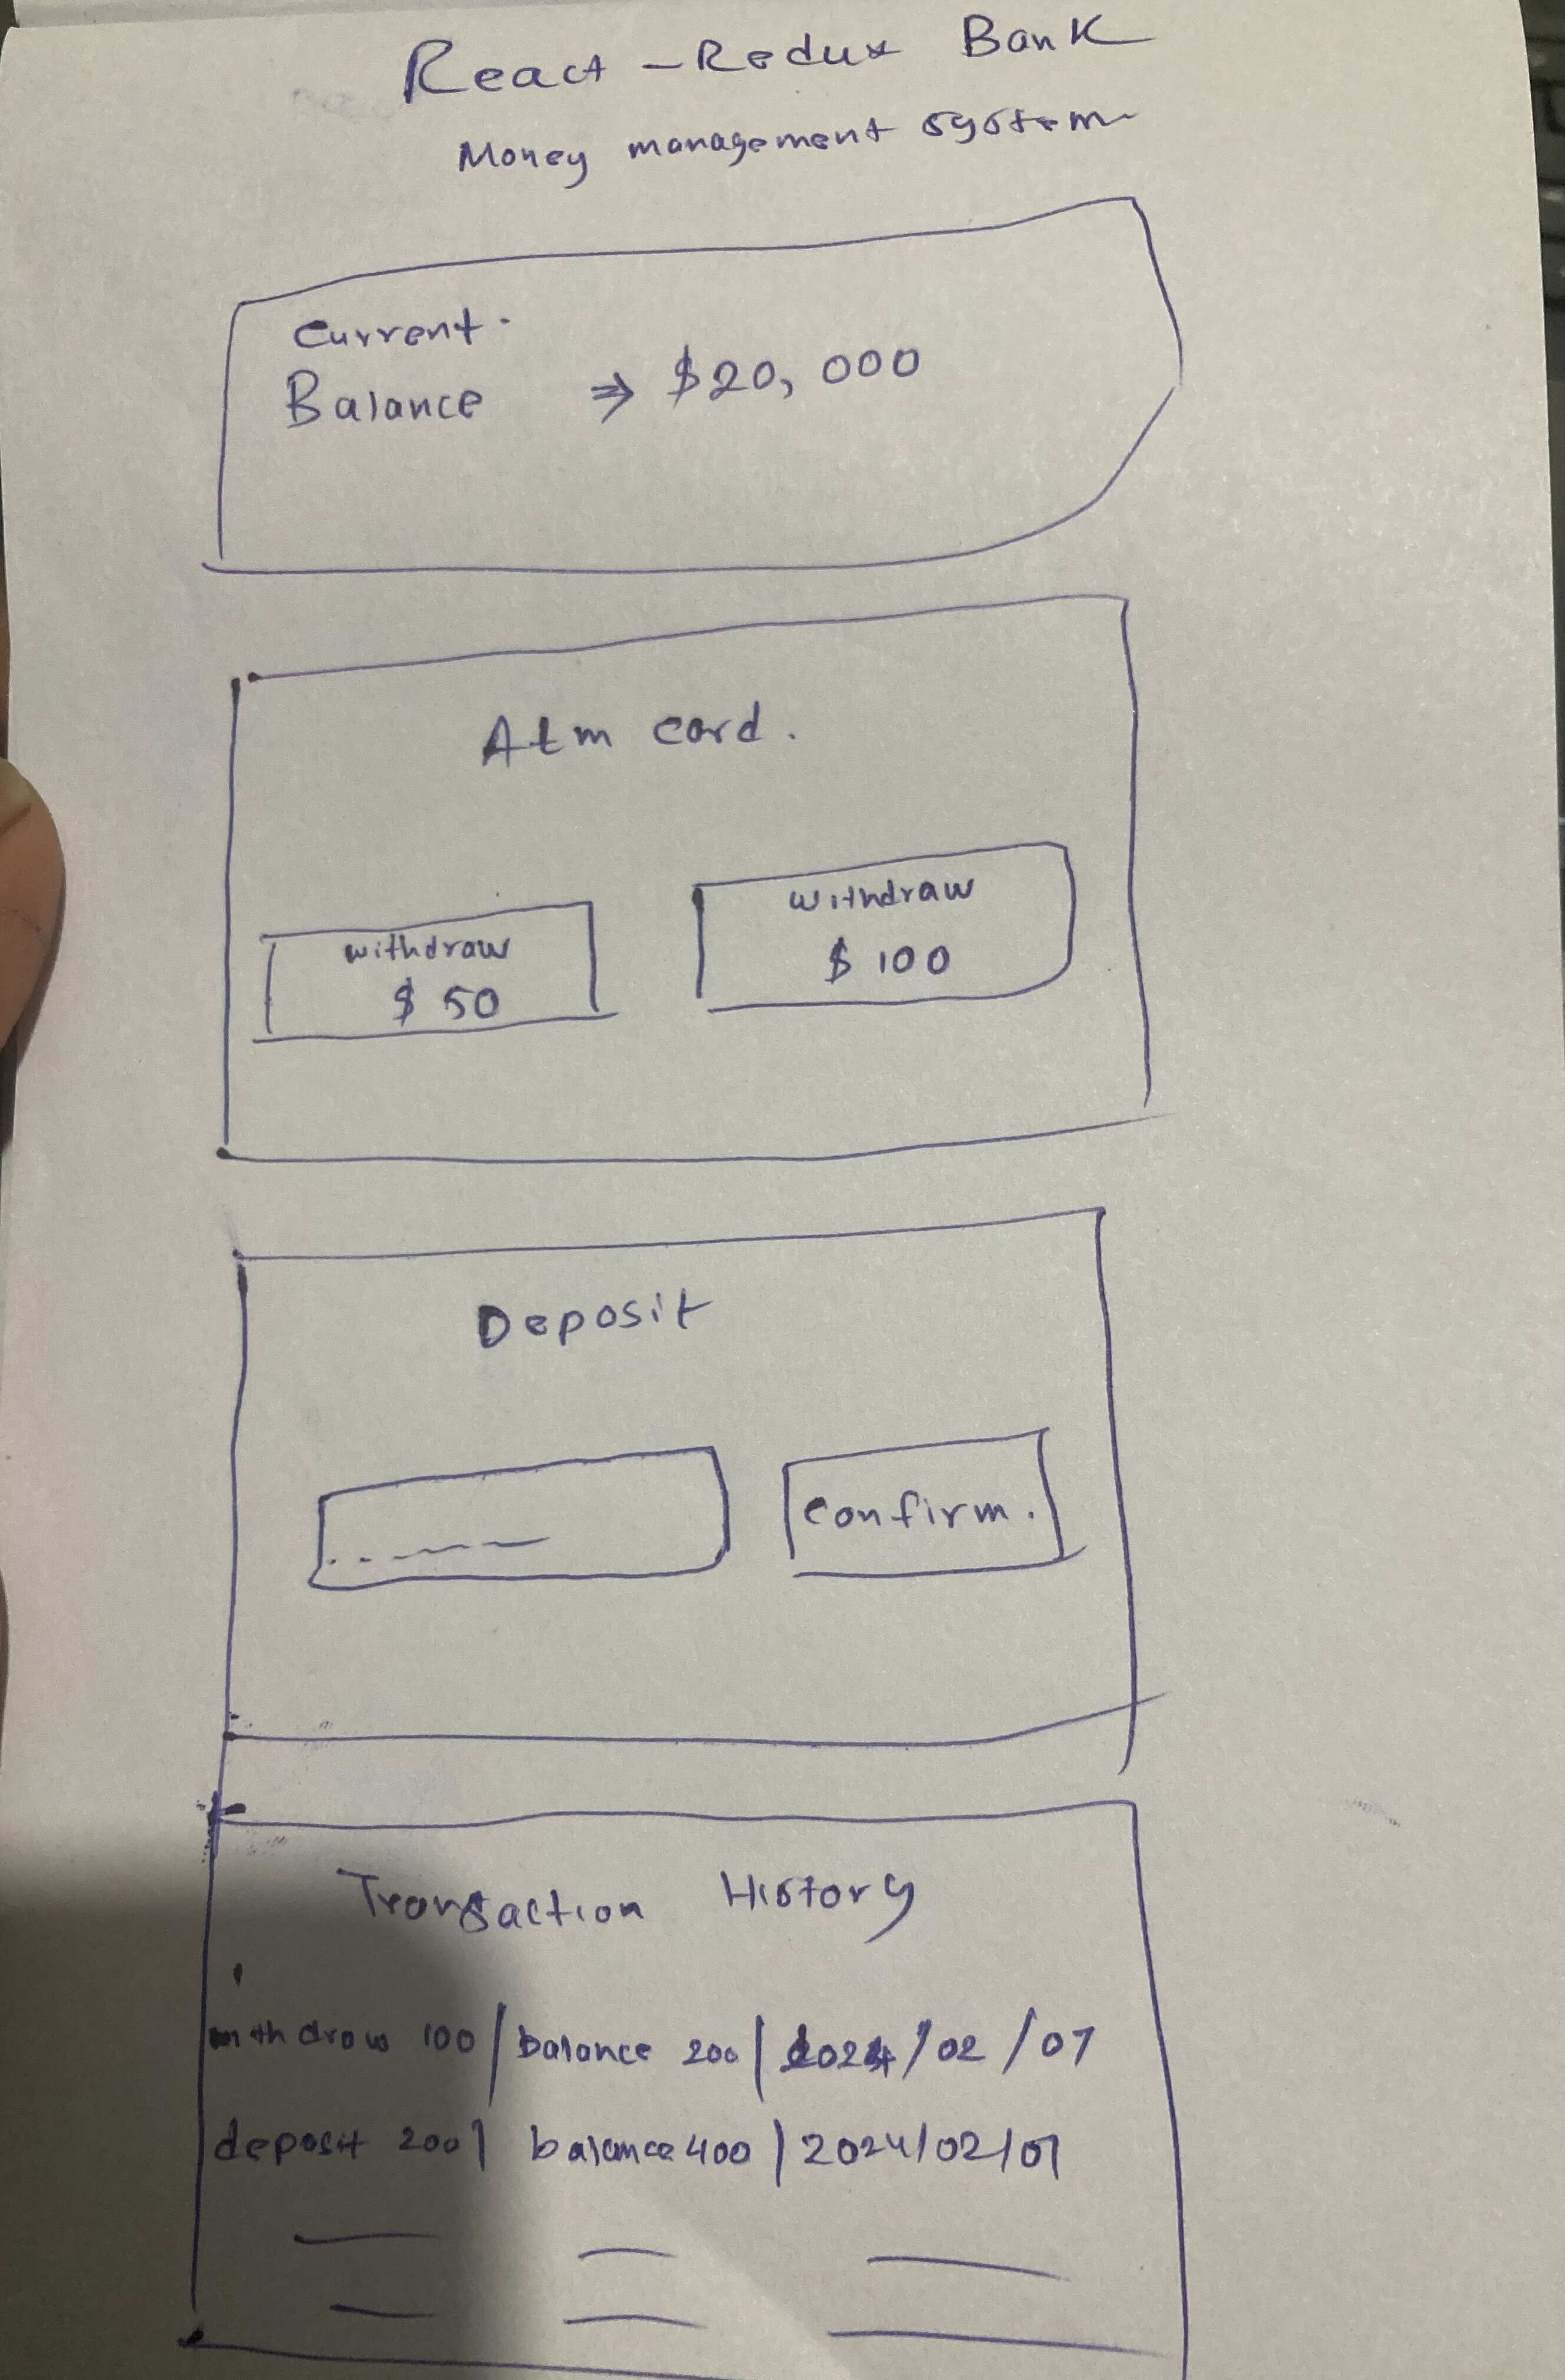 React - Redux Bank
Money management system
Current.
Balance ⇒ $20,000
Atm card.
withdraw
$ 50
withdraw
$ 100
Deposit
confirm.
Transaction History
withdraw 100 / balance 200 | 2024/02/07
deposit 200 | balance 400 | 2024/02/07